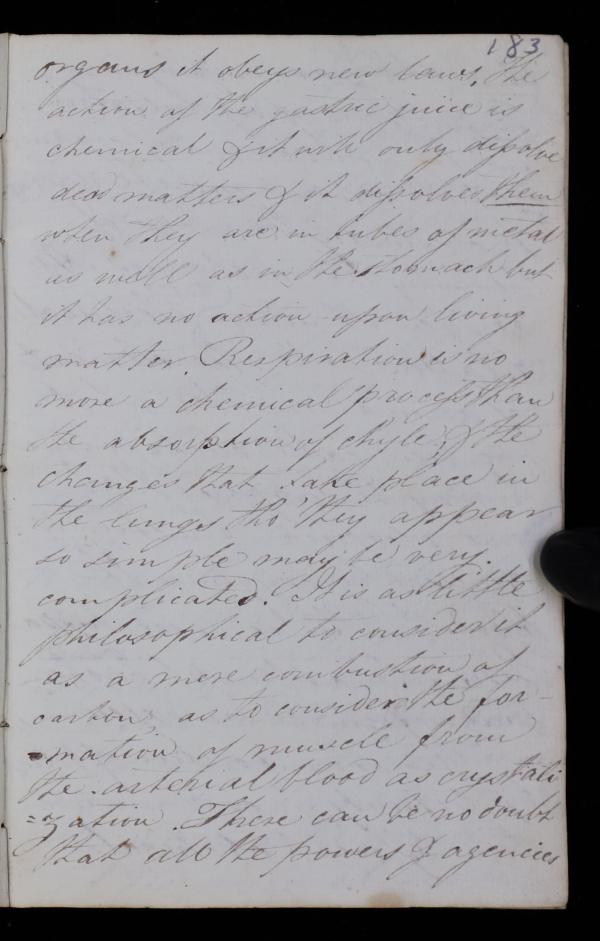 183
organs it obeys new laws, the
action of the gastric juice is
chemical & it will only dissolve
dead matters & it dissolves them
when they are in tubes of metal
as well as in the stomach but
it has no action upon living
matter. Respiration is no
more a chemical process than
the absorption of chyle, & the
changes that take place in
the lungs tho' they appear
so simple may be very
complicated. It is as little
philosophical to consider it
as a mere combustion of
carbon as to consider the for-
-mation of muscle from
the arterial blood as crystali
=zation. There can be no doubt
that all the powers & agencies